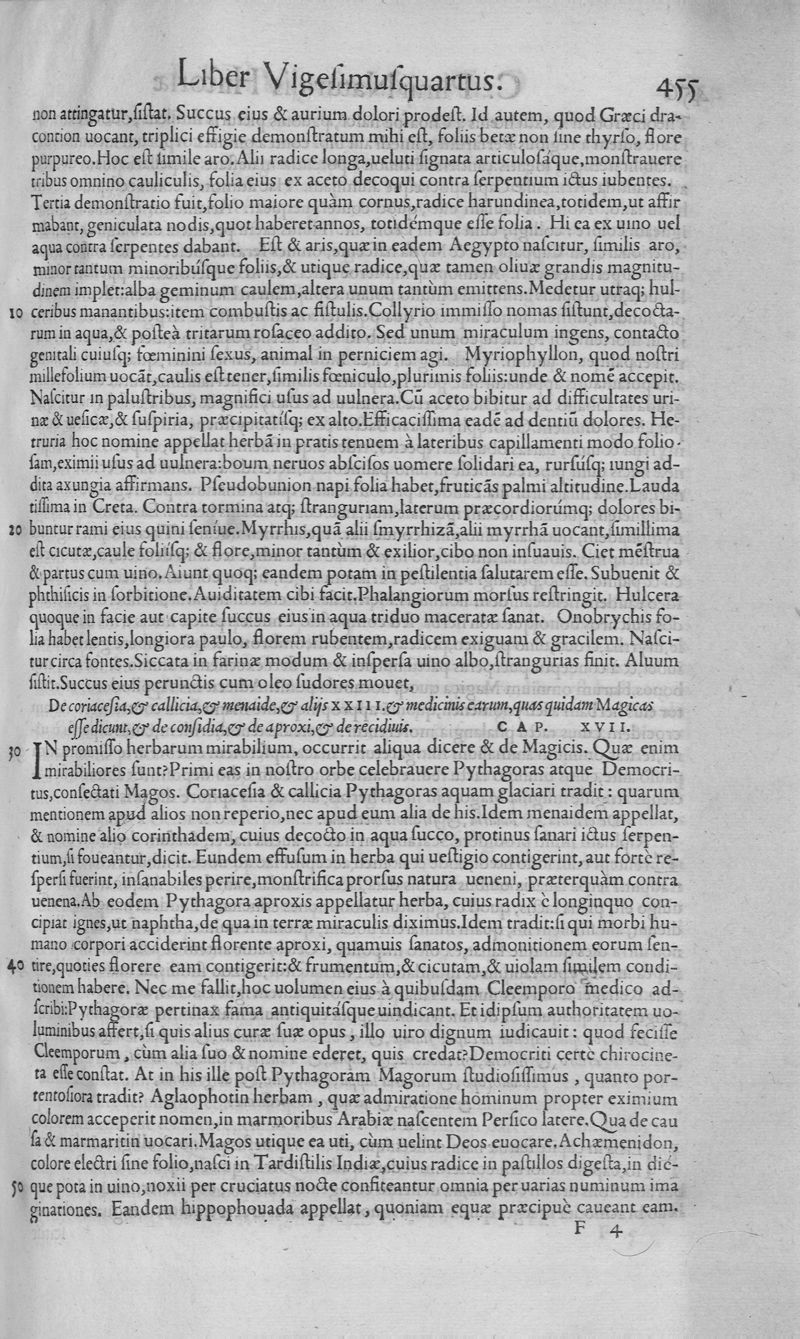 Liber Vigeſimuſquartus. 455
non attingatur,ſiſtat. Succus eius & aurium dolori prodeſt. Id autem, quod Græci dra-
contion uocant, triplici effigie demonſtratum mihi eſt, foliis betæ non ſine thyrſo, flore
purpureo.Hoc eſt ſimile aro. Alii radice longa,ueluti ſignata articuloſáque,monſtrauere
tribus omnino cauliculis, folia eius ex aceto decoqui contra ſerpentium ictus iubentes.
Tertia demonſtratio fuit,folio maiore quàm cornus,radice harundinea,totidem,ut affir
mabant, geniculata nodis,quot haberet annos, totidémque eſſe folia. Hi ea ex uino uel
aqua contra ſerpentes dabant. Eſt & aris,quæ in eadem Aegypto naſcitur, ſimilis aro,
minor tantum minoribúſque foliis,& utique radice,quæ tamen oliuæ grandis magnitu-
dinem implet:alba geminum caulem,altera unum tantùm emittens.Medetur utraq; hul-
10 ceribus manantibus:item combuſtis ac fiſtulis.Collyrio immiſſo nomas ſiſtunt,decocta-
rum in aqua,& poſteà tritarum roſaceo addito. Sed unum miraculum ingens, contacto
genitali cuiuſq; fœminini ſexus, animal in perniciem agi. Myriophyllon, quod noſtri
millefolium uocãt,caulis eſt tener,ſimilis fœniculo,plurimis foliis:unde & nomẽ accepit.
Naſcitur in paluſtribus, magnifici uſus ad uulnera.Cũ aceto bibitur ad difficultates uri-
næ & ueſicæ,& ſuſpiria, præcipitatíſq; ex alto.Efficaciſſima eadẽ ad dentiũ dolores. He-
truria hoc nomine appellat herbã in pratis tenuem à lateribus capillamenti modo folio-
ſam,eximii uſus ad uulnera:boum neruos abſciſos uomere ſolidari ea, rurſúſq; iungi ad-
dita axungia affirmans. Pſeudobunion napi folia habet,fruticãs palmi altitudine.Lauda
tiſſima in Creta. Contra tormina atq; ſtranguriam,laterum præcordiorúmq; dolores bi-
20 buntur rami eius quini ſeníue.Myrrhis,quã alii ſmyrrhizã,alii myrrhã uocant,ſimillima
eſt cicutæ,caule foliíſq; & flore,minor tantùm & exilior,cibo non inſuauis. Ciet mẽſtrua
& partus cum uino. Aiunt quoq; eandem potam in peſtilentia ſalutarem eſſe. Subuenit &
phthiſicis in ſorbitione.Auiditatem cibi facit.Phalangiorum morſus reſtringit. Hulcera
quoque in facie aut capite ſuccus eius in aqua triduo maceratæ ſanat. Onobrychis fo-
lia habet lentis,longiora paulo, florem rubentem,radicem exiguam & gracilem. Naſci-
tur circa fontes.Siccata in farinæ modum & inſperſa uino albo,ſtrangurias finit. Aluum
ſiſtit.Succus eius perunctis cum oleo ſudores mouet,
De coriaceſia,& callicia,& menaide,& alijs XXIII.& medicinis earum,quas quidam Magicas
eſſe dicunt,& de conſidia,& de aproxi,& de recidiuis. CAP. XVII.
30 IN promiſſo herbarum mirabilium, occurrit aliqua dicere & de Magicis. Quæ enim
mirabiliores ſunt?Primi eas in noſtro orbe celebrauere Pythagoras atque Democri-
tus,conſectati Magos. Coriaceſia & callicia Pythagoras aquam glaciari tradit: quarum
mentionem apud alios non reperio,nec apud eum alia de his.Idem menaidem appellat,
& nomine alio corinthadem, cuius decocto in aqua ſucco, protinus ſanari ictus ſerpen-
tium,ſi foueantur,dicit. Eundem effuſum in herba qui ueſtigio contigerint,aut fortè re-
ſperſi fuerint, inſanabiles perire,monſtrifica prorſus natura ueneni, præterquàm contra
uenena.Ab eodem Pythagora aproxis appellatur herba, cuius radix è longinquo con-
cipiat ignes,ut naphtha,de qua in terræ miraculis diximus.Idem tradit:ſi qui morbi hu-
mano corpori acciderint florente aproxi, quamuis ſanatos, admonitionem eorum ſen-
40 tire,quoties florere eam contigerit:& frumentum,& cicutam,& uiolam ſimilem condi-
tionem habere. Nec me fallit,hoc uolumen eius à quibuſdam Cleemporo medico ad-
ſcribi:Pythagoræ pertinax fama antiquitáſque uindicant. Et idipſum authoritatem uo-
luminibus affert,ſi quis alius curæ ſuæ opus, illo uiro dignum iudicauit: quod feciſſe
Cleemporum, cùm alia ſuo & nomine ederet, quis credat?Democriti certè chirocine-
ta eſſe conſtat. At in his ille poſt Pythagoram Magorum ſtudioſiſſimus, quanto por-
tentoſiora tradit? Aglaophotin herbam, quæ admiratione hominum propter eximium
colorem acceperit nomen,in marmoribus Arabiæ naſcentem Perſico latere.Qua de cau
ſa & marmaritin uocari.Magos utique ea uti, cùm uelint Deos euocare.Achæmenidon,
colore electri ſine folio,naſci in Tardiſtilis Indiæ,cuius radice in paſtillos digeſta,in dié-
50 que pota in uino,noxii per cruciatus nocte confiteantur omnia per uarias numinum ima
ginationes. Eandem hippophouada appellat, quoniam equæ præcipuè caueant eam.
F 4